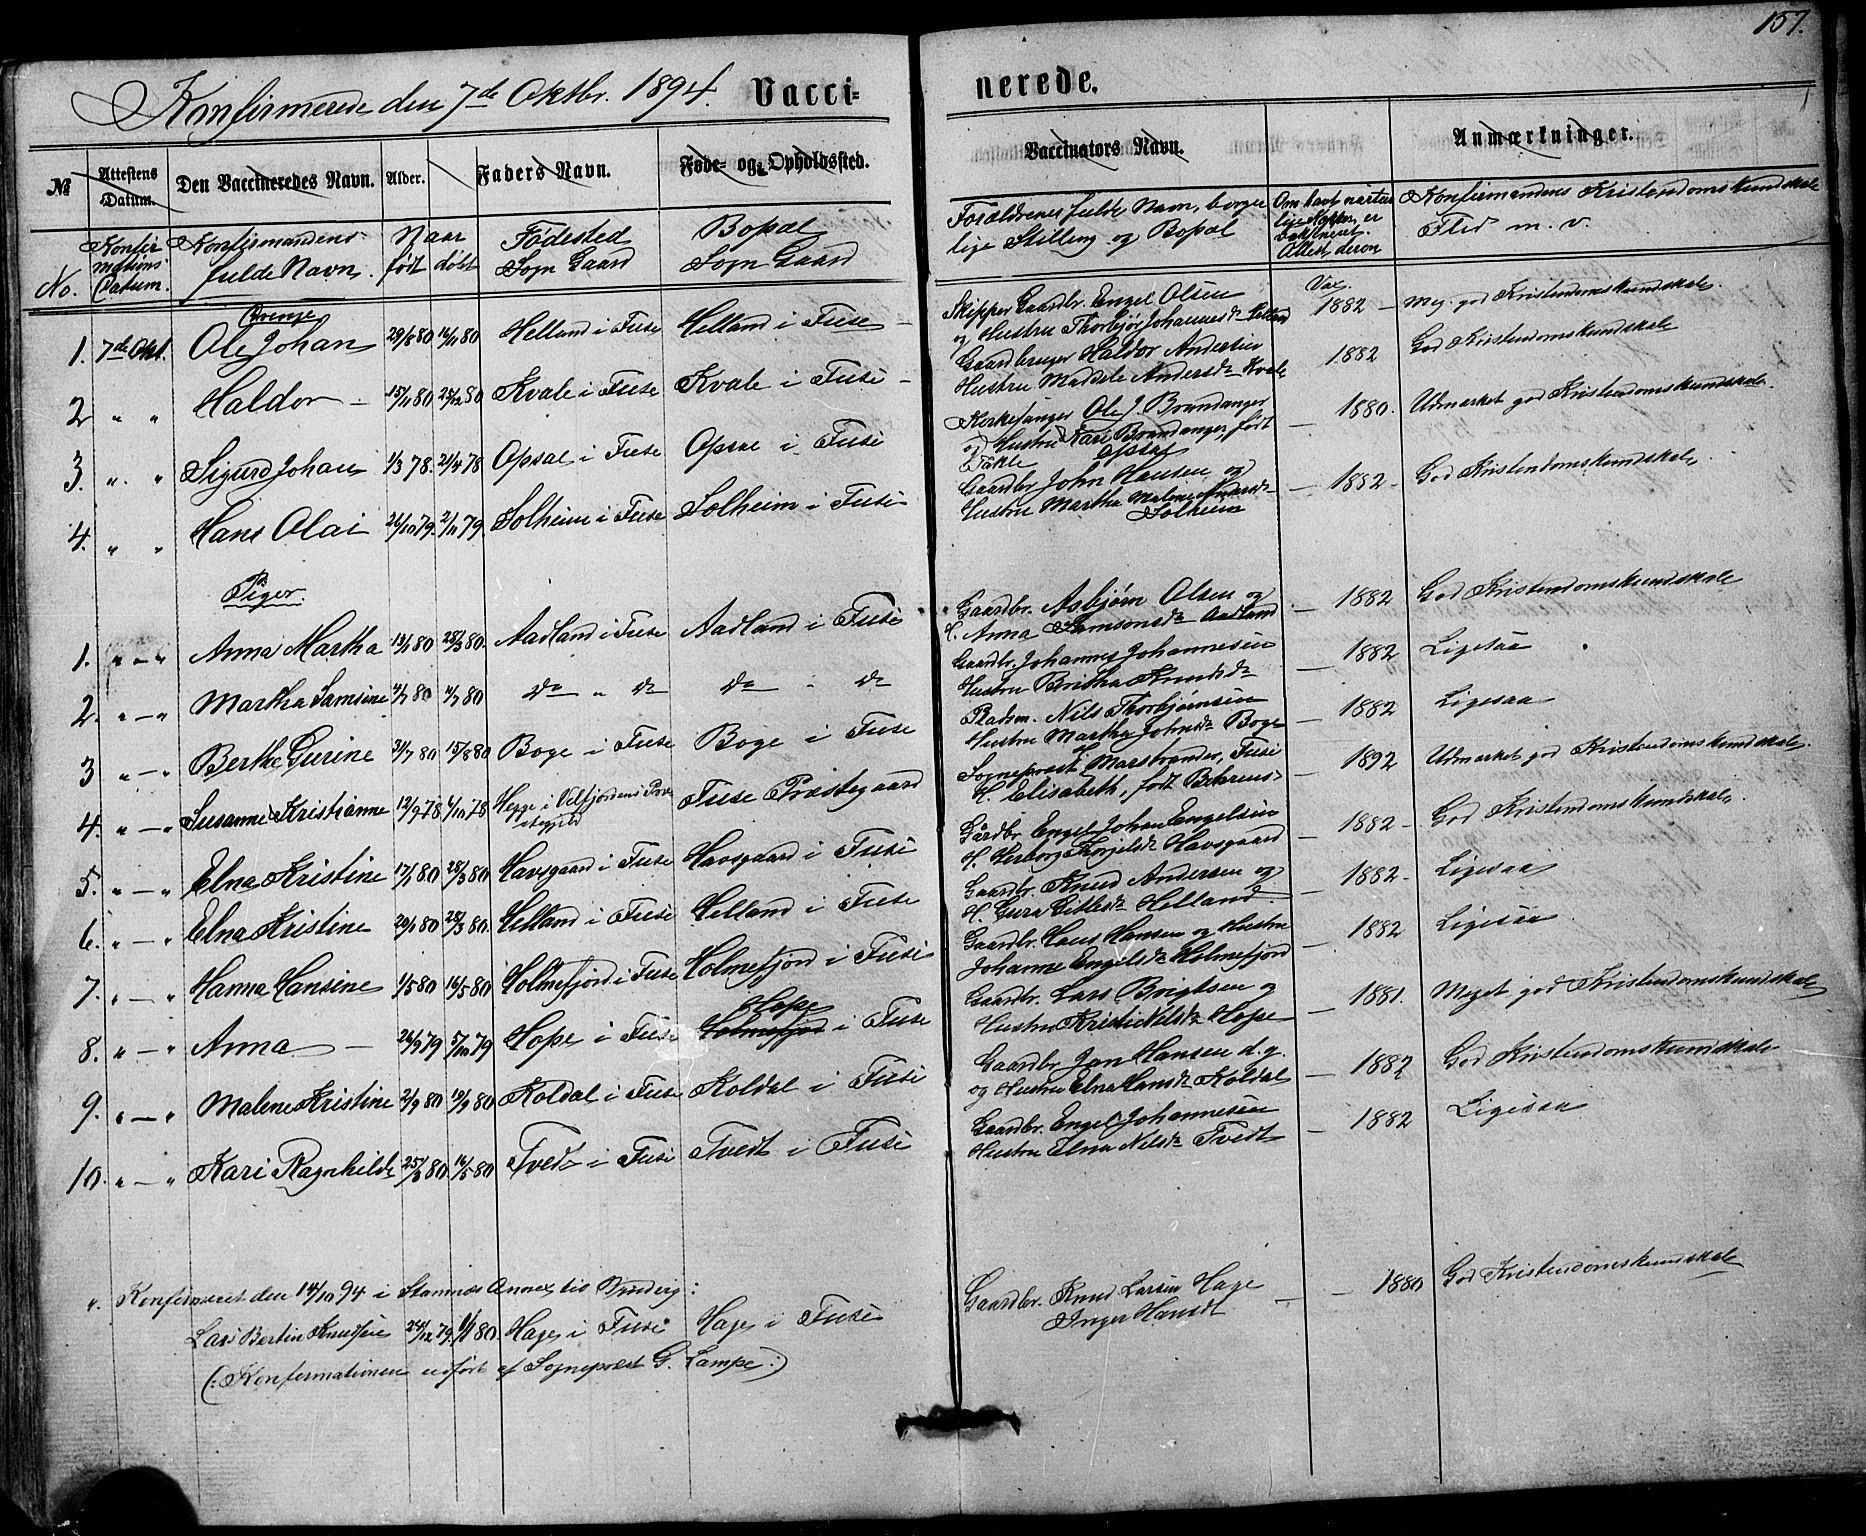 157.
Konfirmerede den 7de Oktbr. 1894. Vacci- nerede.
№ Attestens Datum. Den Vaccineredes Navn. Alder. Faders Navn. Føde- og Opholdssted. Vaccinators Navn. Anmærkninger.
No. Konfirmations Datum. Konfirmandens fulde Navn. Naar født døbt Fødested Sogn Gaard Bopæl Sogn Gaard Forældrenes fulde Navn, borgerlige Stilling og Bopæl Om havt naturlige Kopper, er vakcineret. Attest derom Konfirmandens Kristendomskundskab Flid m. v.
Drenge Vac.
1. 7de Okt. Ole Johan 29/8 80 Helland i Fuse Helland i Fuse Skipper Gaardbr. Engel Olsen og Hustru Thorbjør Johannesdr Helland 1882 Meg. god Kristendomskundskab.
2 " " Haldor 15/11 80 25/12 80 Kvale i Fuse Kvale i Fuse Gaardbruger Haldor Andersen Hustru Maddele Andersdr Kvale 1882 God Kristendomskundskab
3. " " Sigurd Johan 1/3 78. 21/4 78 Opsal i Fuse Opsal i Fuse Kirkesanger Ole J. Brandanger og Hustru Kari Brandanger, født Tøkle Opsal 1880. Udmærket god Kristendomskundskab.
4. " " Hans Olai 26/10 79. 2/11 79. Solheim i Fuse Solheim i Fuse Gaardbr John Hansen og Hustru Martha Malene Andersdr Solheim 1882 God Kristendomskundskab.
Piger.
1. " " Anna Martha 28/3 80. Aadland i Fuse Aadland i Fuse Gaardbr. Asbjørn Olsen og H. Anna Samsonsdr Aadland 1882 God Kristendomskundskab
2. " " Martha Samsine 4/7 80 do " do do " do Gaardbr. Johannes Johannesen Hustru Britha Knudsdr 1882 Ligesaa
3 " " Berthe Gurine 15/8 80 Boge i Fuse Boge i Fuse Pladsm. Nils Thorbjørnsen Hustru Martha Johnsdr Boge 1882 Ligesaa
4. " " Susanne Kristianne 12/9 78 6/10 78 Hegge i Velfjordens Præstegjeld Fuse Præstegaard Sogneprest H. Marstrander, Fuse H. Elisabeth, født Behrens 1892 Udmærket god Kristendomskundskab.
5. " " Elna Kristine 17/1 80 28/3 80 Havsgaard i Fuse Havsgaard i Fuse Gårdbr Engel Johan Engelsen H. Herborg Thorjelsdr Havsgaard 1882 God Kristendomskundskab.
6. " " Elna Kristine 20/1 80 28/3 80. Helland i Fuse Helland i Fuse Gaardbr. Knud Andersen og H. Gura Gitlesdr Helland 1882 Ligesaa
7. " " Hanna Hansine 1/5 80 16/5 80 Holmefjord i Fuse Holmefjord i Fuse Gaardbr. Hans Hansen og Hustru Johanne Engelsdr Holmefjord 1882 Ligesaa
8. " " Anna 26/9 79 5/10 79 Hope i Fuse Holmefjord Hope i Fuse Gaardbr. Lars Brigtsen og Hustru Kristi Nilsdr Hope 1881. Meget god Kristendomskundskab
9. " " Malene Kristine 2/9 80 19/9 80 Koldal i Fuse Koldal i Fuse Gaardbr Jon Hansen d. y. og Hustru Elna Hansdr Koldal 1882 God Kristendomskundskab
10. " " Kari Ragnhilde 25/3 80. 16/5 80 Tvedt i Fuse Tvedt i Fuse Gaardbr. Engel Johannesen Hustru Elna Nilsdr Tvedt 1882 Ligesaa
". Konfirmeret den 14/10 94 i Stamnæs Annex til
Lars Bertin Knudsen 24/12 79. 1/1 80. Hage i Fuse Hage i Fuse Gaardbr. Knud Larsen Hage Inger Hansdr 1880 God Kristendomskundskab
(: Konfirmationen udført af Sogneprest G. Lampe :)